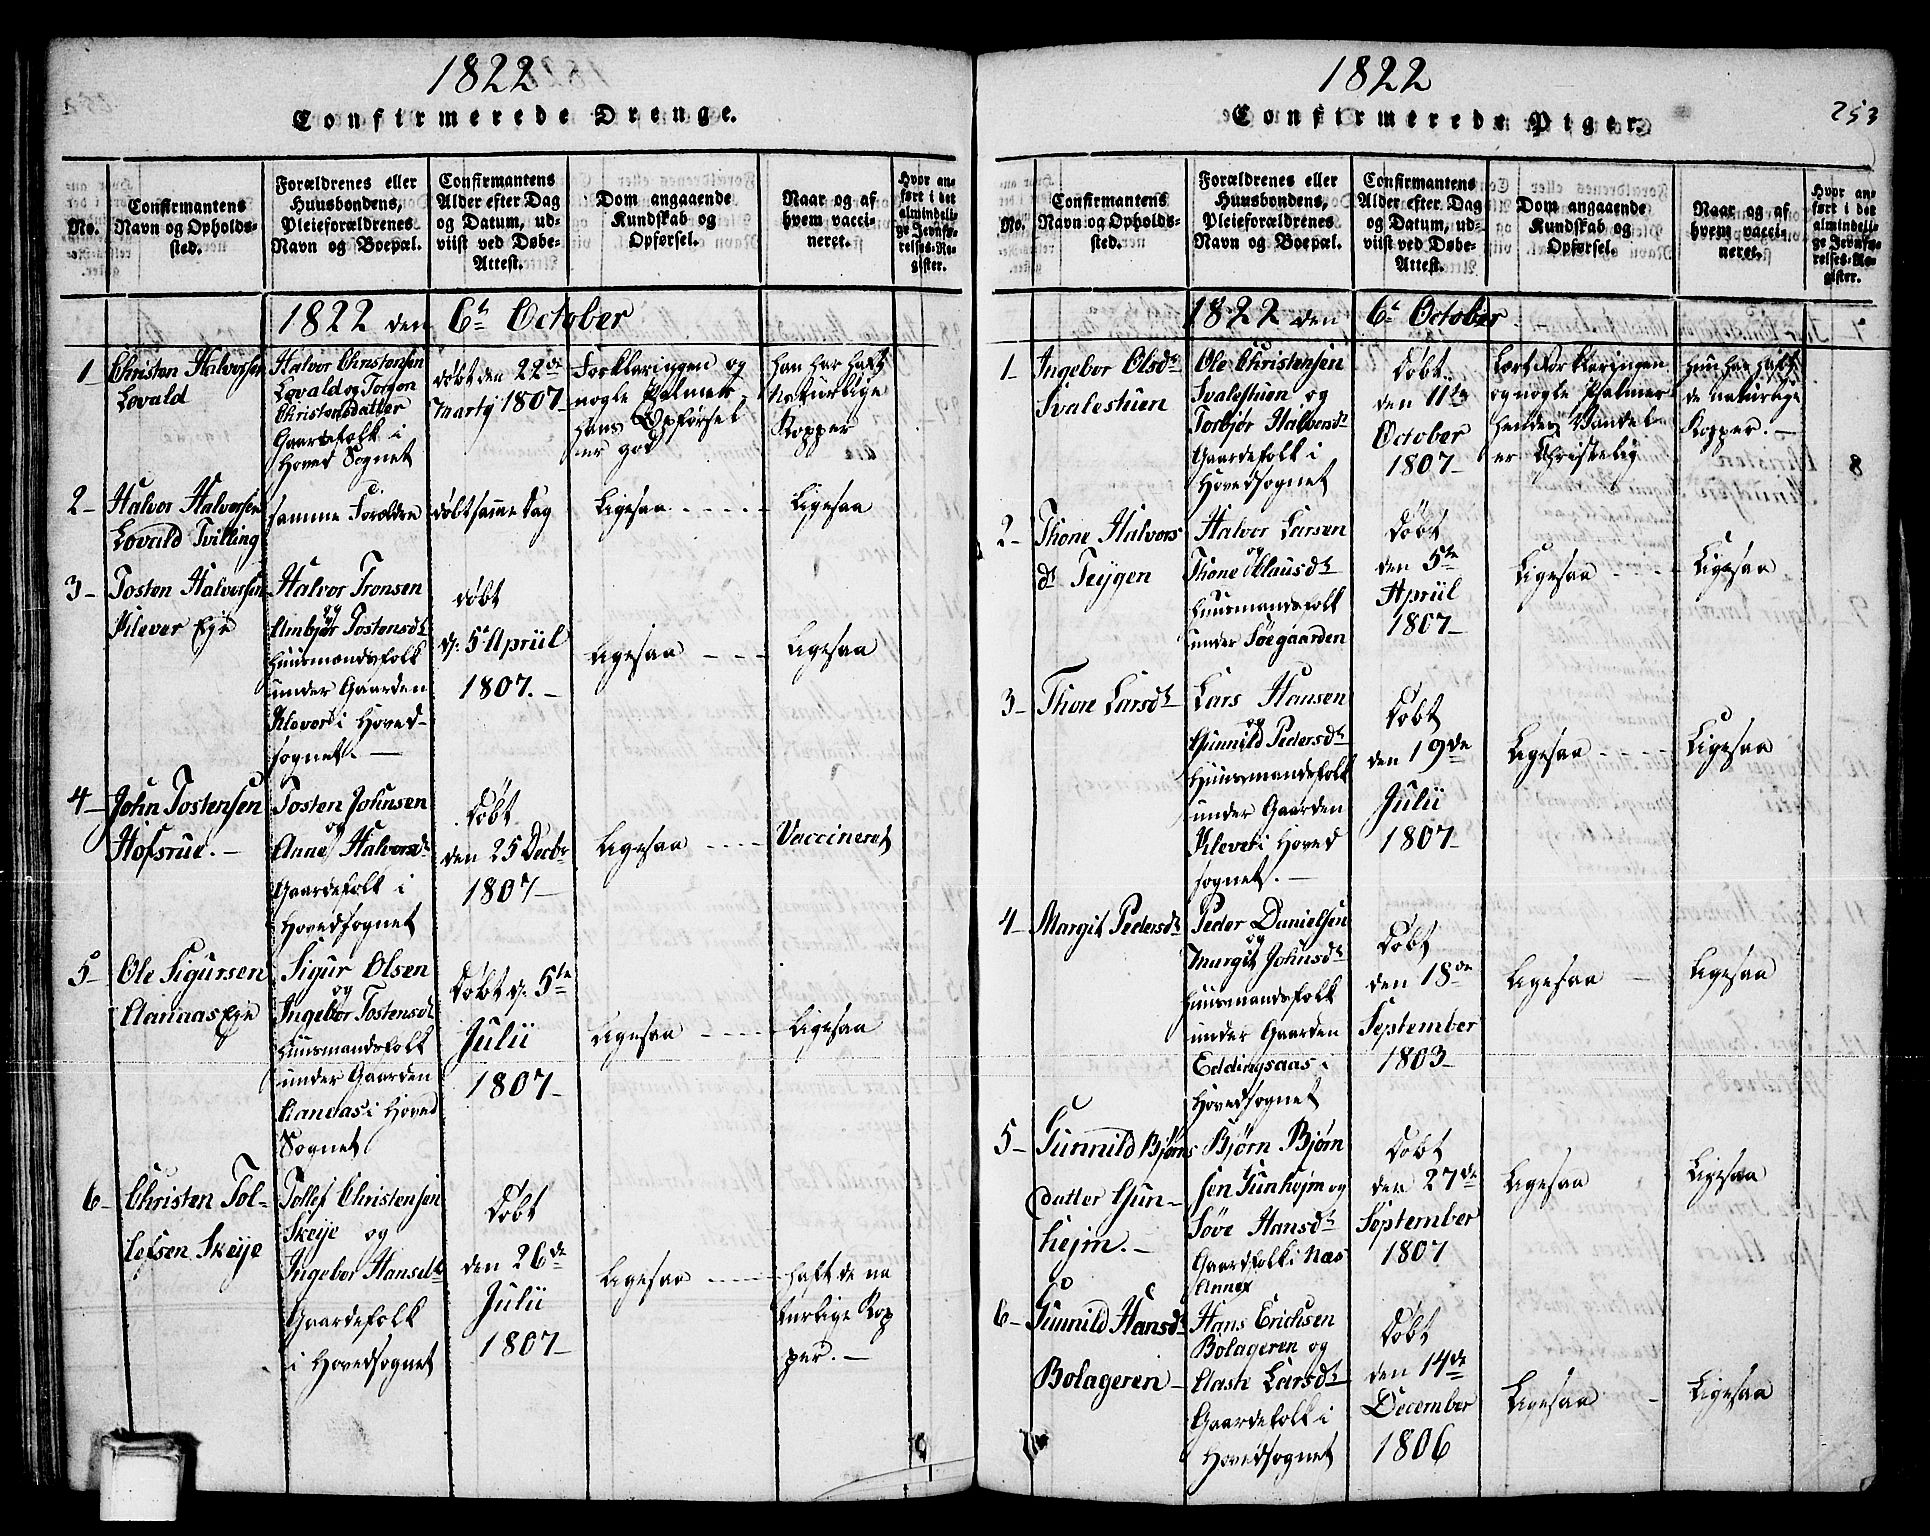 1822
Confirmerede Drenge.
No.
Confirmantens
Navn og Opholds-
sted.
Forældrenes eller
Huusbondens,
Pleieforældrenes
Navn og Boepæl.
Confirmantens
Alder efter Dag
og Datum, ud-
viist ved Døbe-
Attest.
Dom angaaende
Kundskab og
Opførsel.
Naar og af
hvem vacci-
neret.
Hvor an-
ført i det
almindeli-
ge Jevnfø-
relses-Re-
gister.
1822 den 6te October
1 Christen Halvorsen
Lovald
Halvor Christensen
Lovald og Torjon
Christensdatter
Gaardefolk i
Hoved Sognet
døbt den 22de
Martj 1807
Forklaringen og
nogle Psalmer
Hans Opførsel
er god
han har haft
naturlige
Kopper
2 Halvor Halvorsen
Lovald Tvilling
samme Forældre
døbt samme Dag
Ligesaa
Ligesaa
3 Tosten Halvorsen
Klever Eje
Halvor Tronsen
og
Ambjør Tostensdr
Huusmandsfolk
under Gaarden
Klever i Hoved-
sognet.
døbt
d. 5te Apriil
1807.
Ligesaa
Ligesaa
4 John Tostensen
Hofsrue.
Tosten Johnsen
og
Anne Halvorsdr
Gaardefolk i
Hovedsognet
Døbt
den 25 Decbr
1807
Ligesaa
Vaccineret
5 Ole Sigursen
Aanaas Eje
Sigur Olsen
og
Ingebor Tostensdr
Huusmandsfolk
under Gaarden
Aanaas i Hoved
Sognet
Døbt d. 5te
Julii
1807
Ligesaa
Ligesaa
6 Christen Tol-
lefsen Skeije
Tollef Christensen
Skeije og
Ingebor Hansdr
Gaardefolk
i Hovedsognet
Døbt
den 26de
Julii
1807
Ligesaa
haft de na
turlige Kop
per.
1822
Confirmerede Piger.
253
No.
Confirmantens
Navn og Opholds-
sted.
Forældrenes eller
Huusbondens,
Pleieforældrenes
Navn og Boepæl.
Confirmantens
Alder efter Dag
og Datum, ud-
viist ved Døbe-
Attest.
Dom angaaende
Kundskab og
Opførsel.
Naar og af
hvem vacci-
neret.
Hvor an-
ført i det
almindeli-
ge Jevnfø-
relses-Re-
gister.
1822 den 6te October
1 Ingebor Olsdr
Svalestuen
Ole Christensen
Svalestuen og
Torbjør Halvorsdr
Gaardefolk i
Hovedsognet
Døbt
den 11te
October
1807
Lært Forklaringen
og nogle Psalmer
hendes Vandel
er Christelig
Hun har haft
de naturlige
Kopper.
2 Thone Halvors
dr Teijgen
Halvor Larsen
og
Thone Klausdr
Huusmandsfolk
under Søegaarden
Døbt
den 5te
Apriil
1807
Ligesaa
Ligesaa
3 Thore Larsdr
Lars Hansen
og
Gunnild Pedersdr
Huusmandsfolk
under Gaarden
Klever i Hoved
sognet.
Døbt
den 19de
Julii
1807
Ligesaa
Ligesaa
4 Margit Pedersdr
Peder Danielsen
og
Margit Johnsdr
Huusmandsfolk
under Gaarden
Eddingsaas i
Hovedsognet
Døbt
den 18de
September
1803
Ligesaa
Ligesaa
5 Gunnild Bjørns
datter Gun-
hejm.
Bjørn Bjørn
sen Gunhejm og
Søve Hansdr
Gaardfolk i Næs
Annex
Døbt
den 27de
September
1807
Ligesaa
Ligesaa
6 Gunnild Hansdr
Bolageren
Hans Erichsen
Bolageren og
Aaste Larsdr
Gaardefolk i
Hovedsognet
Døbt
den 14de
December
1806
Ligesaa
Ligesaa